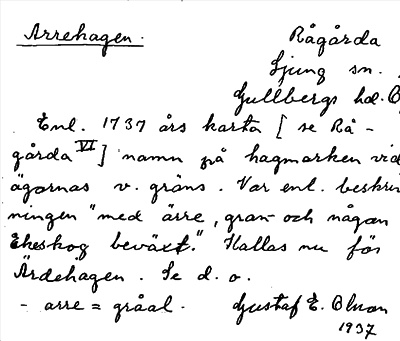 Arrehagen. Rågårda
Ljung sn.
Gullbergs hd.
Enl. 1737 års karta [se Rå-
gårda VI] namn på hagmarken vid
ägornas v. gräns. Var enl. beskriv
ningen "med ärre, gran- och någon
Ekeskog beväxt." Kallas nu för
Ärdehagen. Se d. o.
- arre = gråal. Gustaf E. Olsson
1937